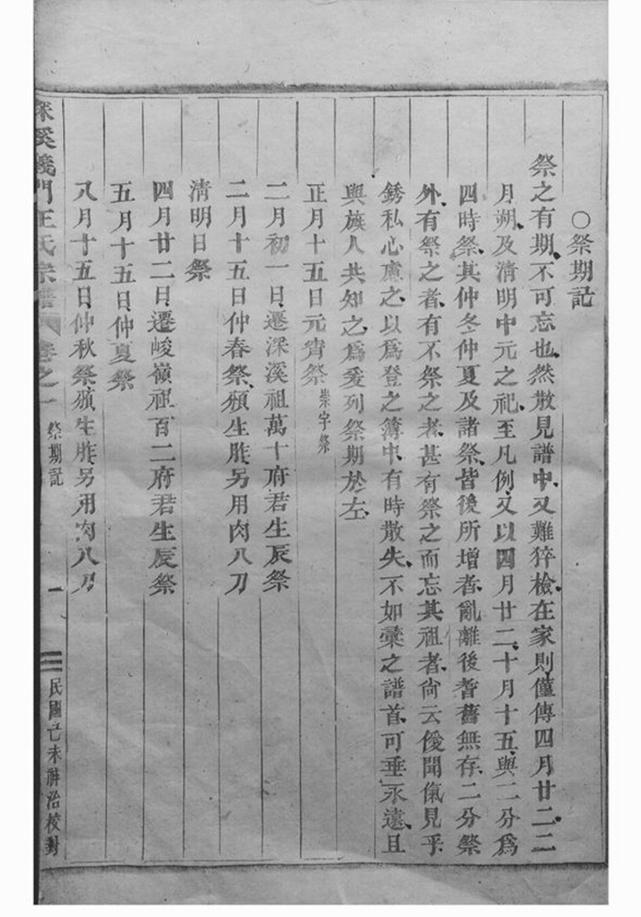 ○祭期記
祭之有期不可忘也然散見譜中又難猝檢在家則僅傳四月廿二二
月朔及清明中元之祀至凡例又以四月廿二十月十五與二分爲
四時祭其仲冬仲夏及諸祭皆後所增者亂離後誓舊無存二分祭
外有祭之者有不祭之者甚有祭之而忘其祖者尙云僾聞愾見乎
銹私心慮之以爲登之簿中有時散失不如彙之譜首可垂永遠且
與族人共知之爲爰列祭期於左
正月十五日元宵祭 崇字祭
二月初一日遷深溪祖萬十府君生辰祭
二月十五日仲春祭頒生胙另用肉八刀
清明日祭
四月廿二日遷峻嶺祖百二府君生辰祭
五月十五日仲夏祭
八月十五日仲秋祭頒生胙另用肉八刀
深溪義門王氏宗譜 卷之一 祭期記 一 民國己未辭治校對